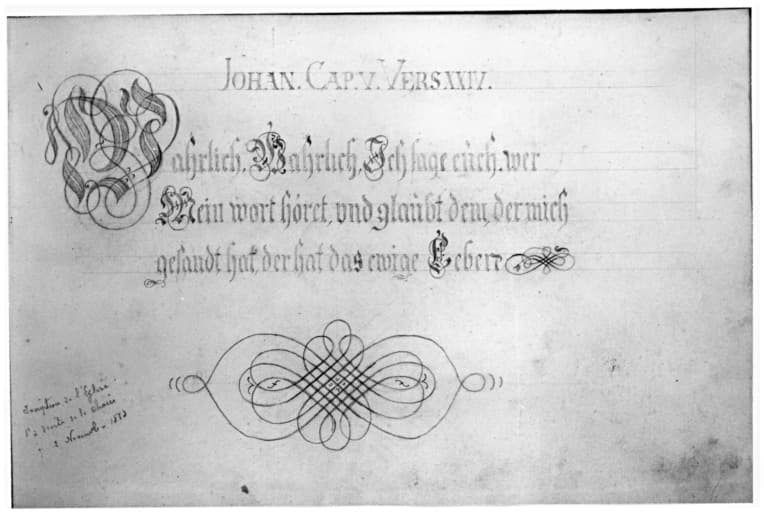 JOHAN. CAP. V. VERS XXIV.
Wahrlich, Wahrlich, Ich sage eüch. wer
Mein wort höret, vnd glaübt dem, der mich
gesandt hat, der hat das ewige Leben
Inscription de l'Eglise
à droite de la chaire
2 Novembre